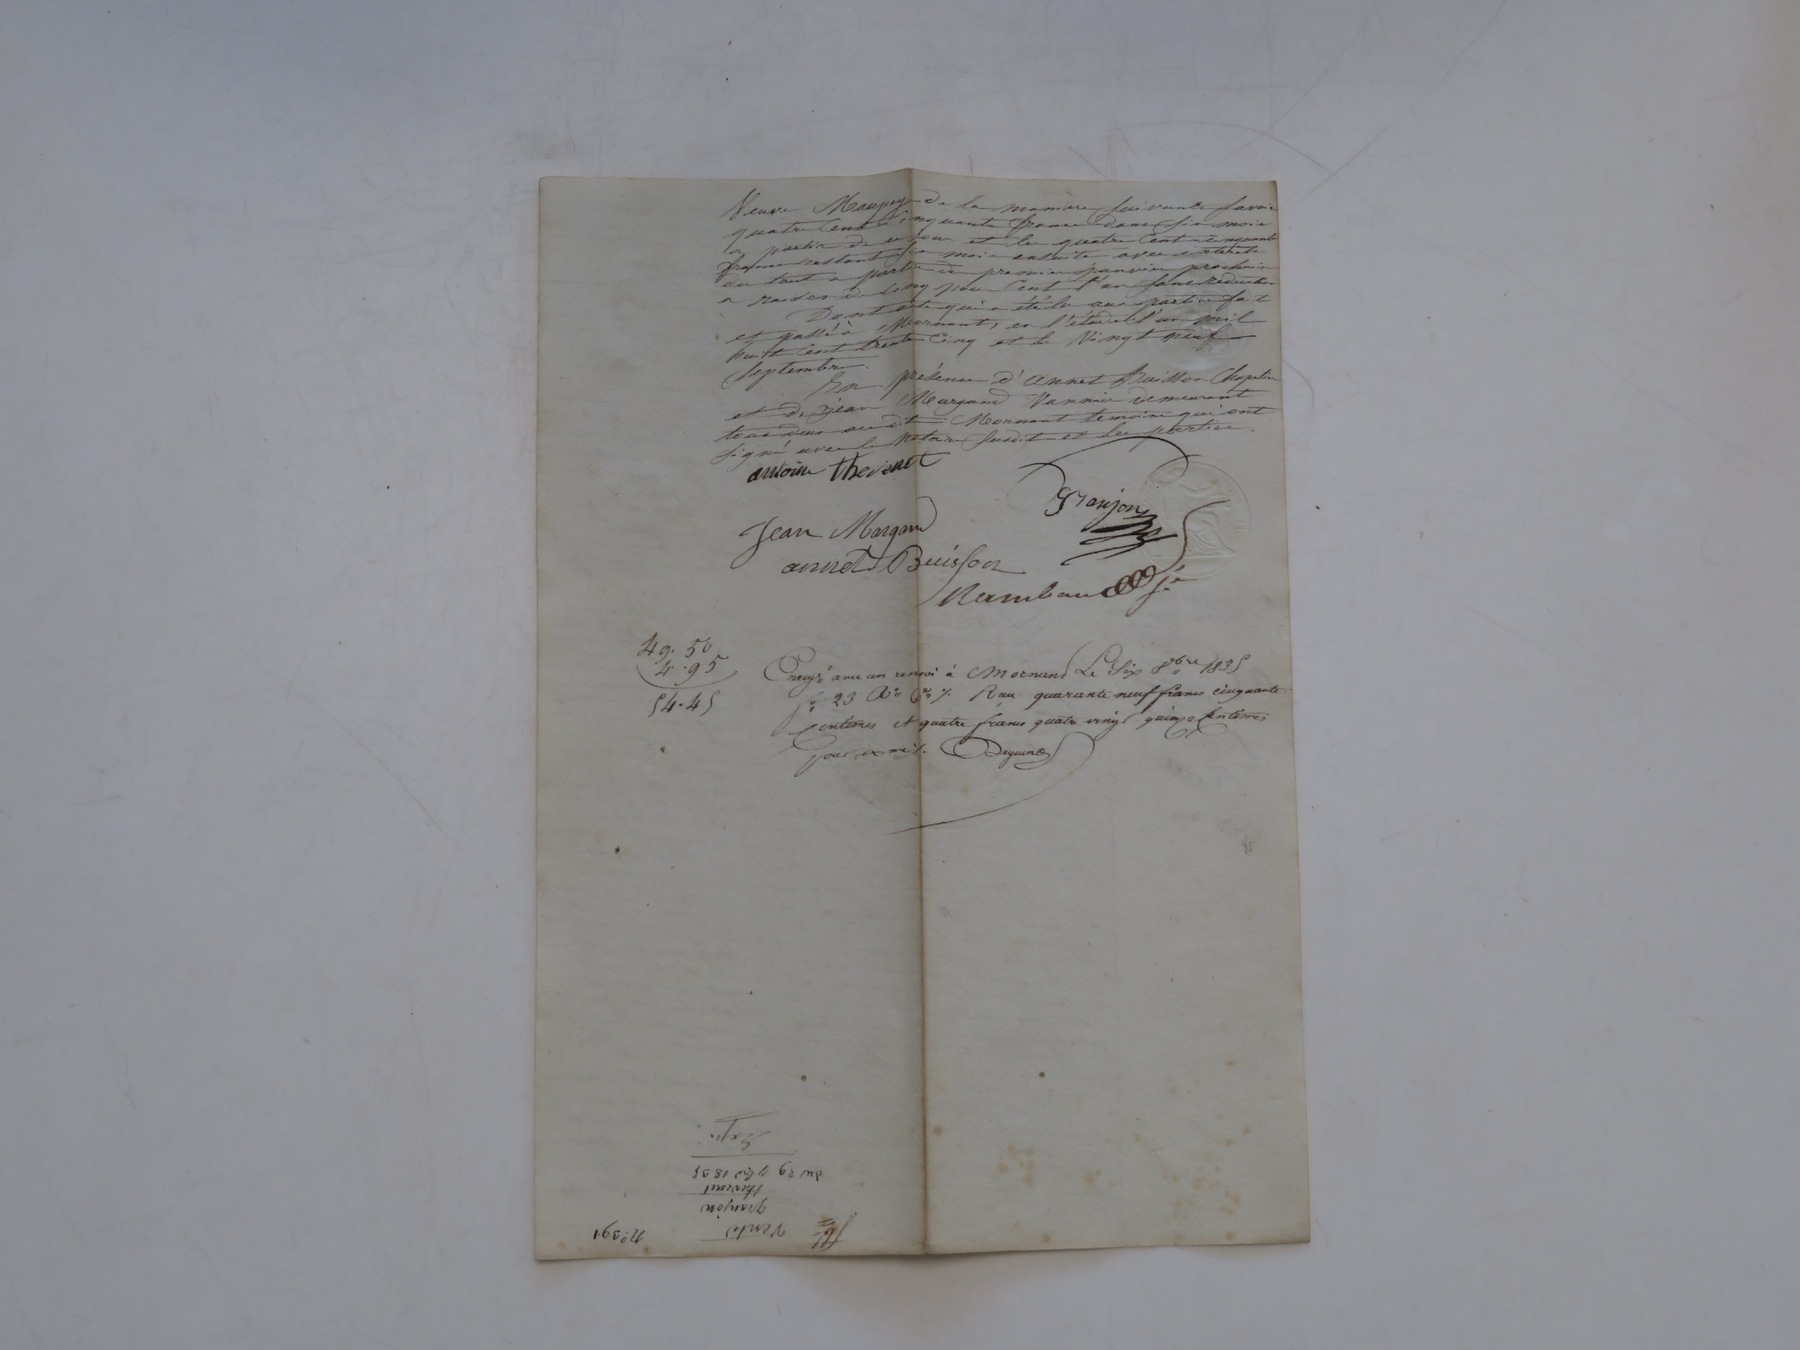 Veuve Maupuy de la maniere suivante savoir
quatre Cent Cinquante francs dans six mois
a partir de ce jour et les quatre Cent cinquante
francs restant six mois ensuite avec intérêts
du tout a partir du premier janvier prochain
a raison de Cinq pour Cent l'an sans reduction
Dont acte qui a été lu aux parties fait
et passé à Mornant, en l'étude l'an mil
huit Cent trente Cinq et le Vingt neuf
Septembre.
En présence d'annet Buisson Chapelier
et de Jean Margand Vannier demeurant
tous deux au dit Mornant temoins qui ont
signé avec le Notaire susdit et les parties.
antoine thevenet
Granjon
Jean Margand
annet Buisson
Rambaud
49. 50
4. 95
54. 45
Enregé avec un renvoi à Mornant Le Six 8bre 1835
fo 23 Ro Reçu quarante neuf francs cinquante
Centimes et quatre francs quatre vingt quinze Centimes
pour
No 391
Vente
granjon
thevenet
du 29 7bre 1835